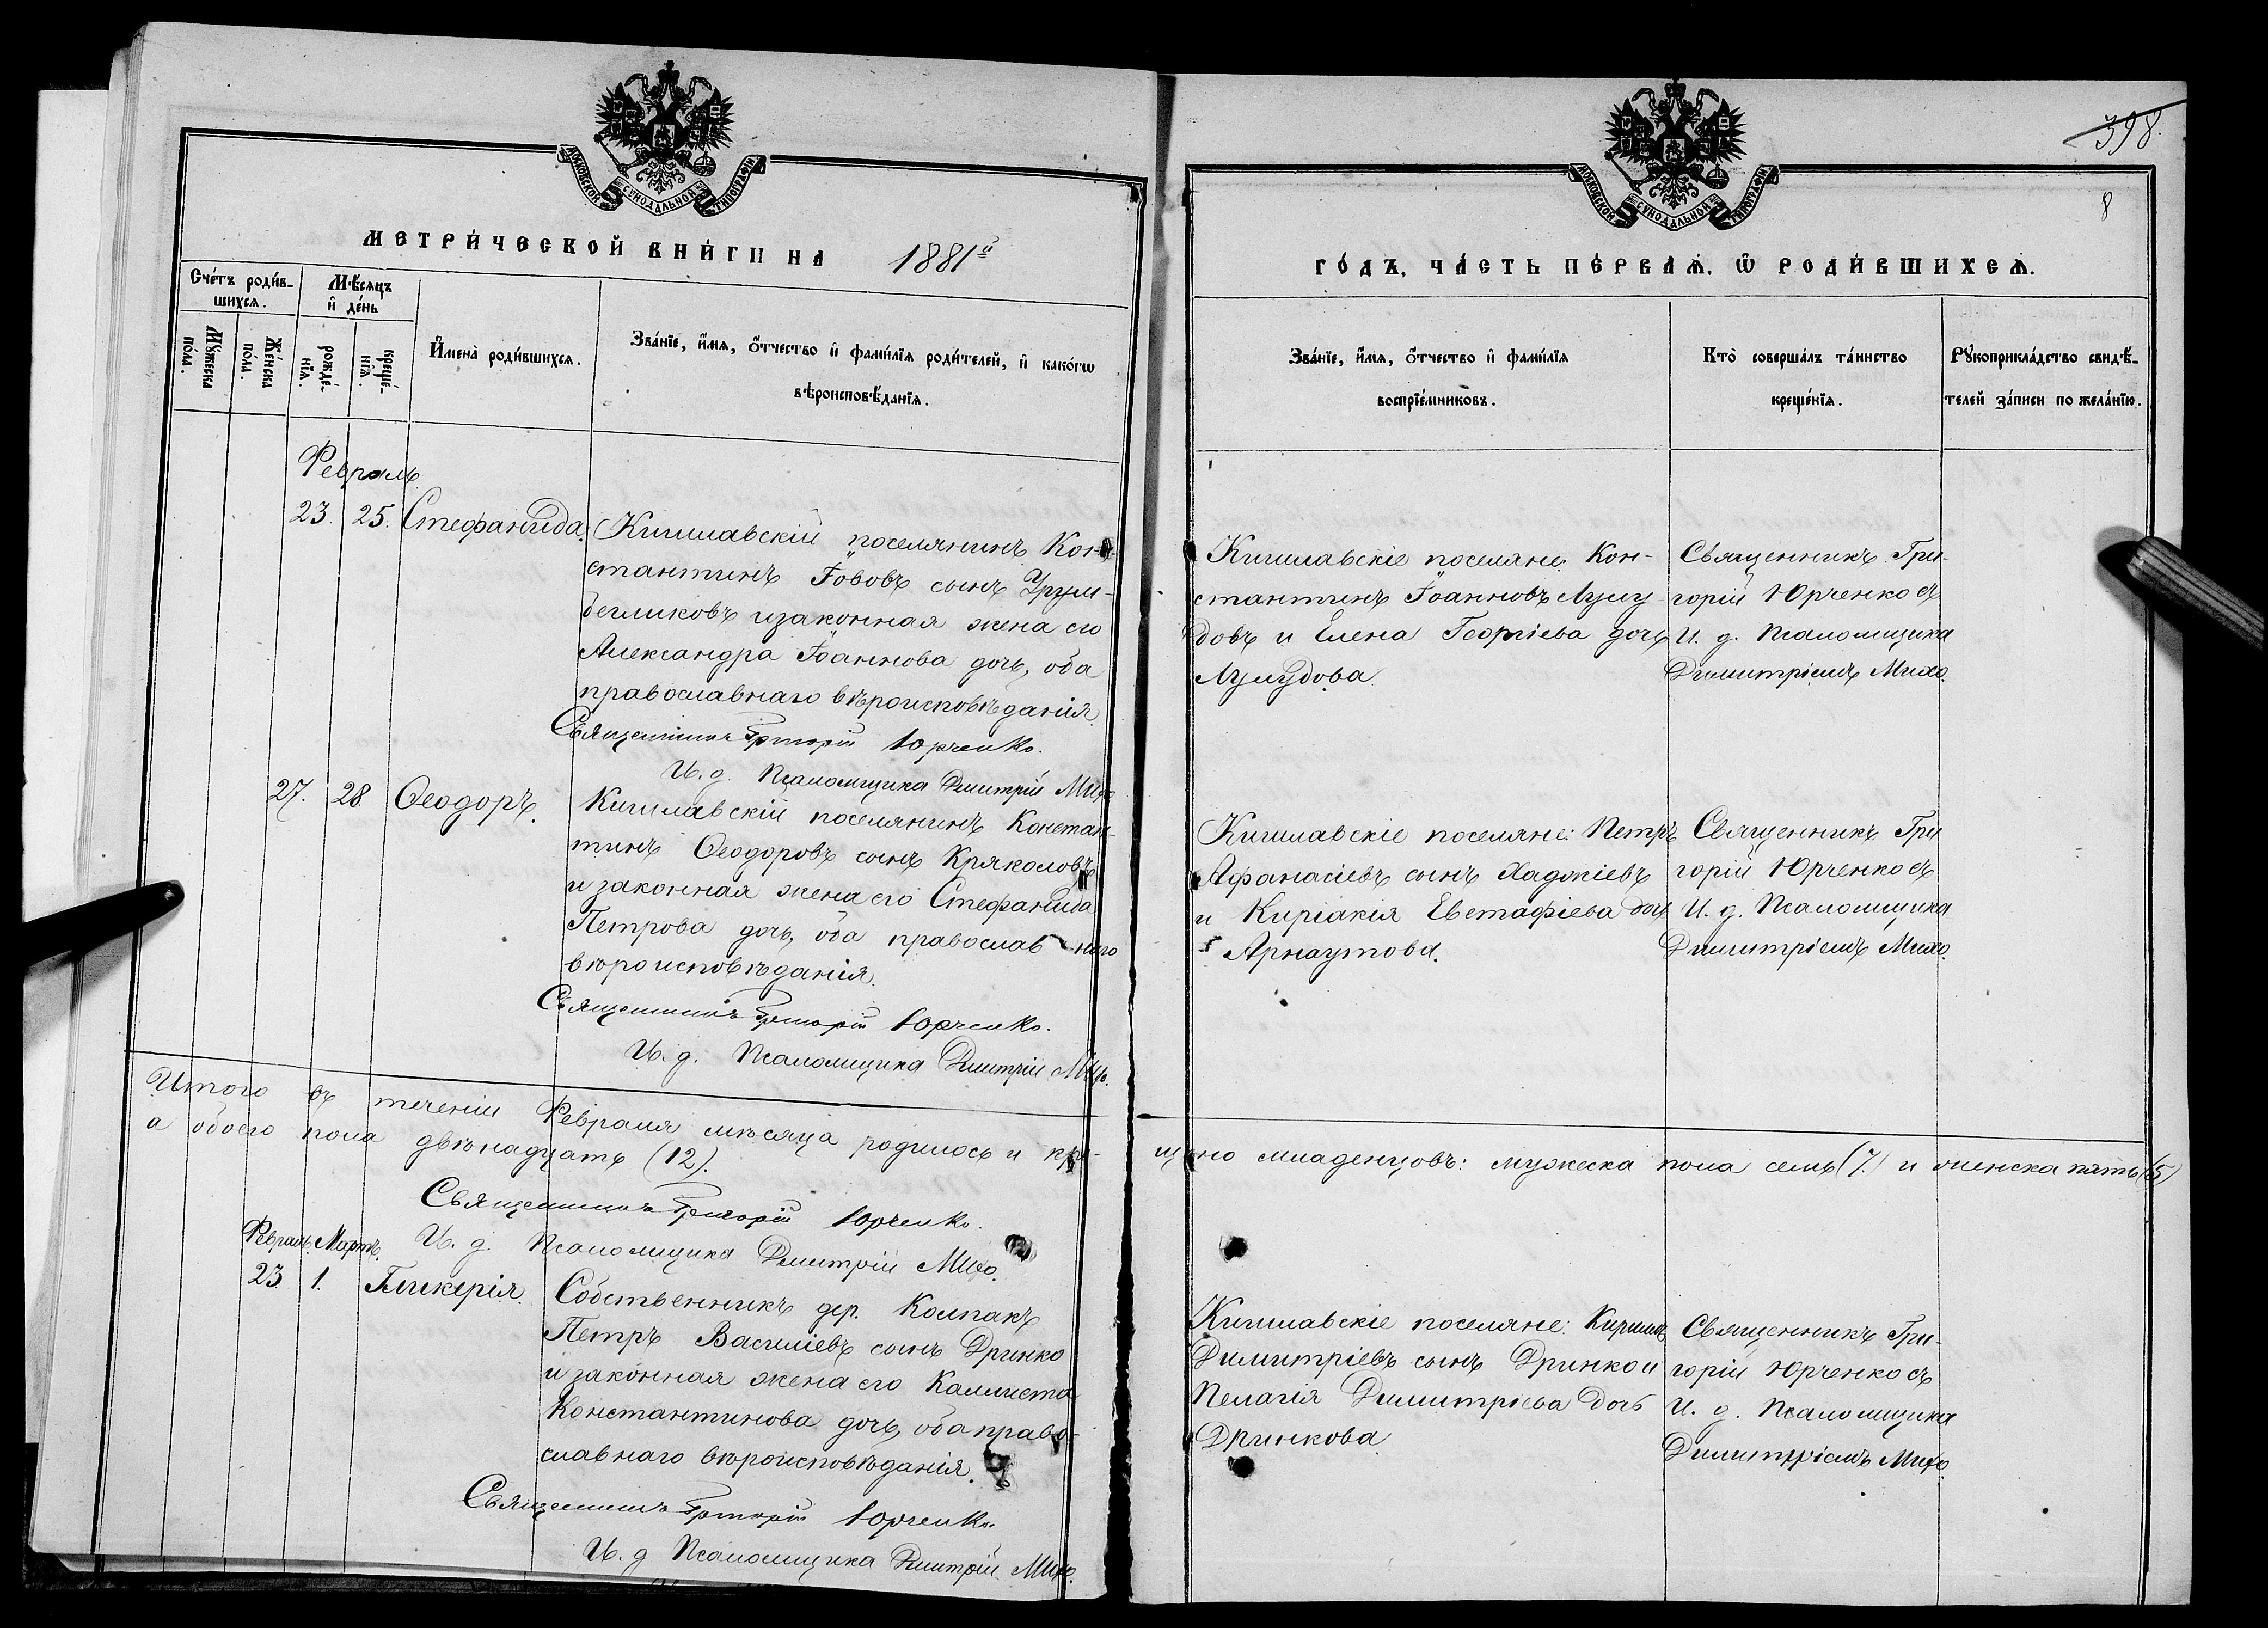 МОСКОВСКОЙ СѴНОДАЛЬНОЙ ТИПОГРАФІИ
МЕТРИ́ЧЕСКОЙ КНИ́ГИ НА 1881й
Сче́тъ роди́в-
шихсѧ.
Мѣ́сѧцъ
и҆ де́нь
Мꙋ́жеска
по́ла.
Же́нска
по́ла.
рожде́-
нїѧ.
креще́-
нїѧ.
И҆мена̀ роди́вшихсѧ.
Зва́нїе, и҆́мѧ, ѻ҆́тчество и҆ фами́лїѧ роди́телей, и҆ како́гѡ
вѣроисповѣ́данїѧ.
Февраль
23. 25. Стефанида.
Кишлавскій поселянинъ Кон-
стантинъ Іововъ сынъ Урум-
бегликовъ и законная жена его
Александра Іоаннова дочь, оба
православнаго вѣроисповѣданія.
Священникъ Григорій Юрченко.
И. д. Псаломщика Димитрій Михо.
27. 28 Ѳеодоръ.
Кишлавскій поселянинъ Констан-
тинъ Ѳеодоровъ сынъ Кряколовъ
и законная жена его Стефанида
Петрова дочь, оба православнаго
вѣроисповѣданія.
Священникъ Григорій Юрченко.
И. д. Псаломщика Димитрій Михо.
Итого въ теченіи Февраля мѣсяца родилось и кре-
а обоего пола двѣнадцать (12).
Священникъ Григорій Юрченко.
И. д. Псаломщика Димитрій Михо.
Февраль Мартъ
23 1. Гликерія.
Собственникъ дер. Колпакъ
Петръ Василіевъ сынъ Дринко
и законная жена его Каллиста
Константинова дочь, оба право-
славнаго вѣроисповѣданія.
Священникъ Григорій Юрченко.
И. д Псаломщика Димитрій Михо.
398.
8
МОСКОВСКОЙ СѴНОДАЛЬНОЙ ТИПОГРАФІИ
ГО́ДЪ, ЧА́СТЬ ПЕ́РВАѦ, Ѡ҆ РОДИ́ВШИХСѦ.
Зва́нїе, и҆́мѧ, ѻ҆́тчество и҆ фами́лїѧ
воспрїе́мниковъ.
Кто̀ соверша́лъ та́инство
креще́нїѧ.
Рꙋкоприкла́дство свидѣ́-
телей за́писи по жела́нїю.
Кишлавскіе поселяне: Кон-
стантинъ Іоанновъ Лулу-
довъ и Елена Георгіева дочь
Лулудова.
Священникъ Гри-
горій Юрченко съ
И. д. Псаломщика
Димитріемъ Михо.
Кишлавскіе поселяне: Петръ
Афанасіевъ сынъ Хаджіевъ
и Киріакія Евстафіева дочь
Арнаутова.
Священникъ Гри
горій Юрченко съ
И. д. Псаломщика
Димитріемъ Михо.
щено младенцовъ: мужеска пола семь (7.) и женска пять (5)
Кишлавскіе поселяне: Кириллъ
Димитріевъ сынъ Дринко и
Пелагія Димитріева дочь
Дринкова
Священникъ Гри-
горій Юрченко съ
И. д. Псаломщика
Димитріемъ Михо.